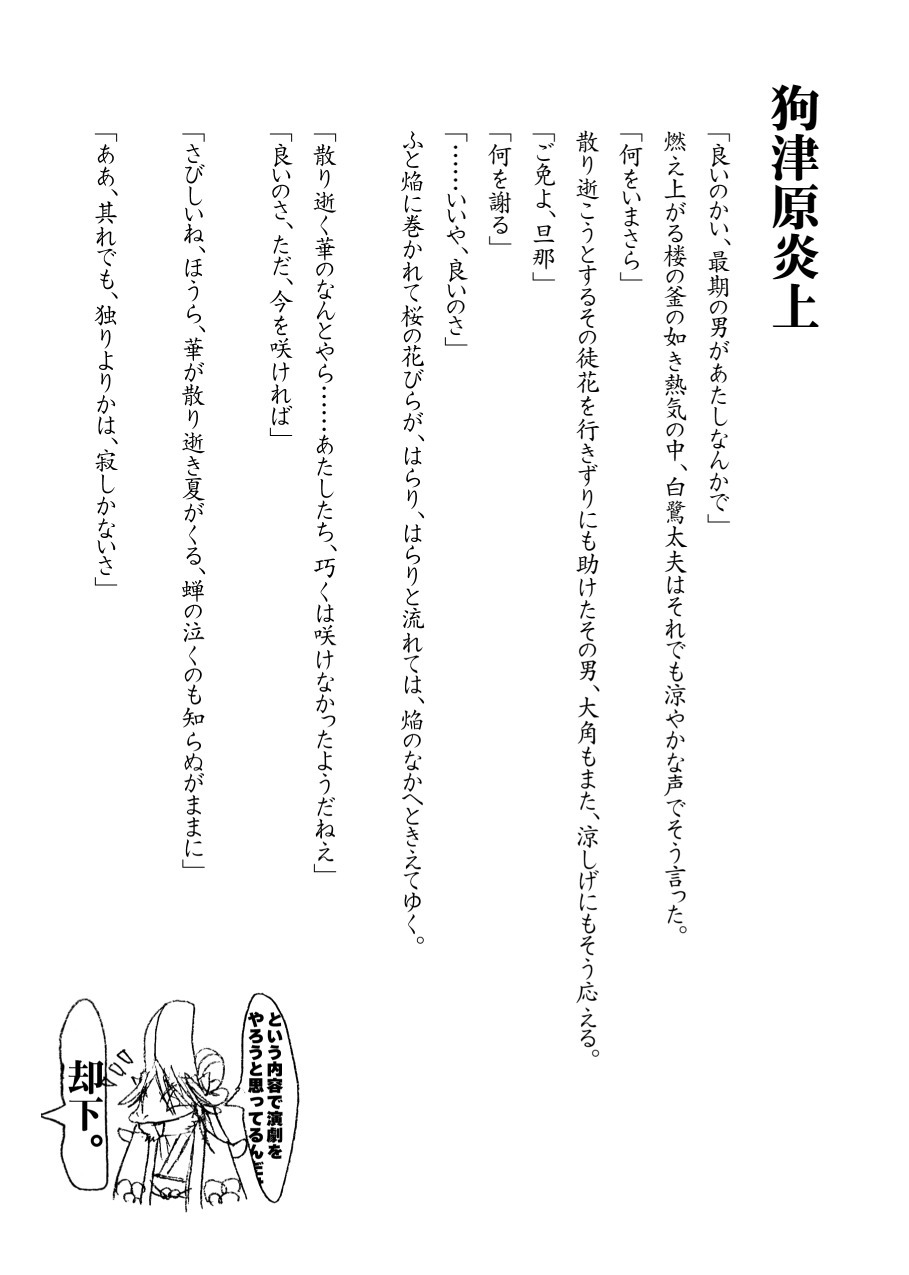 狗津原炎上
「良いのかい、最期の男があたしなんかで」
燃え上がる楼の釜の如き熱気の中、白鷺太夫はそれでも涼やかな声でそう言った。
「何をいまさら」
散り逝こうとするその徒花を行きずりにも助けたその男、大角もまた、涼しげにもそう応える。
「ご免よ、旦那」
「何を謝る」
「……いいや、良いのさ」
ふと焔に巻かれて桜の花びらが、はらり、はらりと流れては、焔のなかへときえてゆく。
「散り逝く華のなんとやら……あたしたち、巧くは咲けなかったようだねえ」
「良いのさ、ただ、今を咲ければ」
「さびしいね、ほうら、華が散り逝き夏がくる、蝉の泣くのも知らぬがままに」
「ああ、其れでも、独りよりかは、寂しかないさ」
という内容で演劇を
やろうと思ってるんだ
却下。